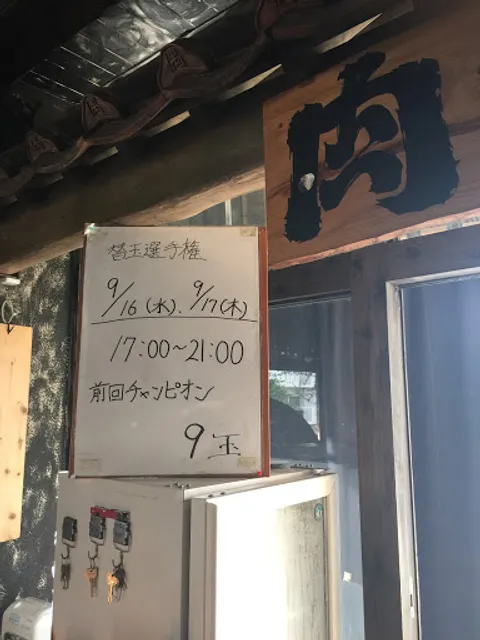 替玉選手権
9/16(水)、9/17(木)
17:00~21:00
前回チャンピオン
9玉
肉